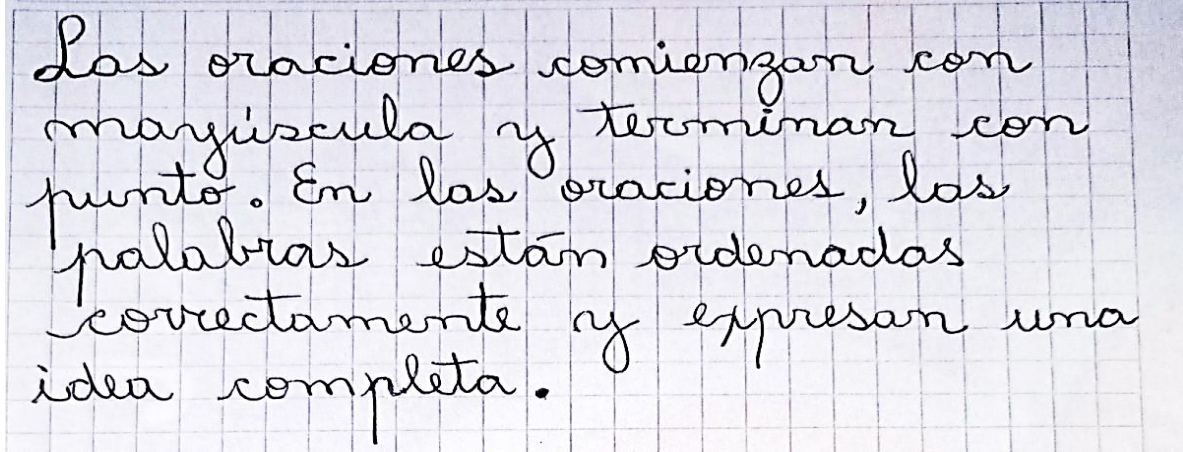 Las oraciones comienzan con
mayúscula y terminan con
punto. En las oraciones, las
palabras están ordenadas
correctamente y expresan una
idea completa.